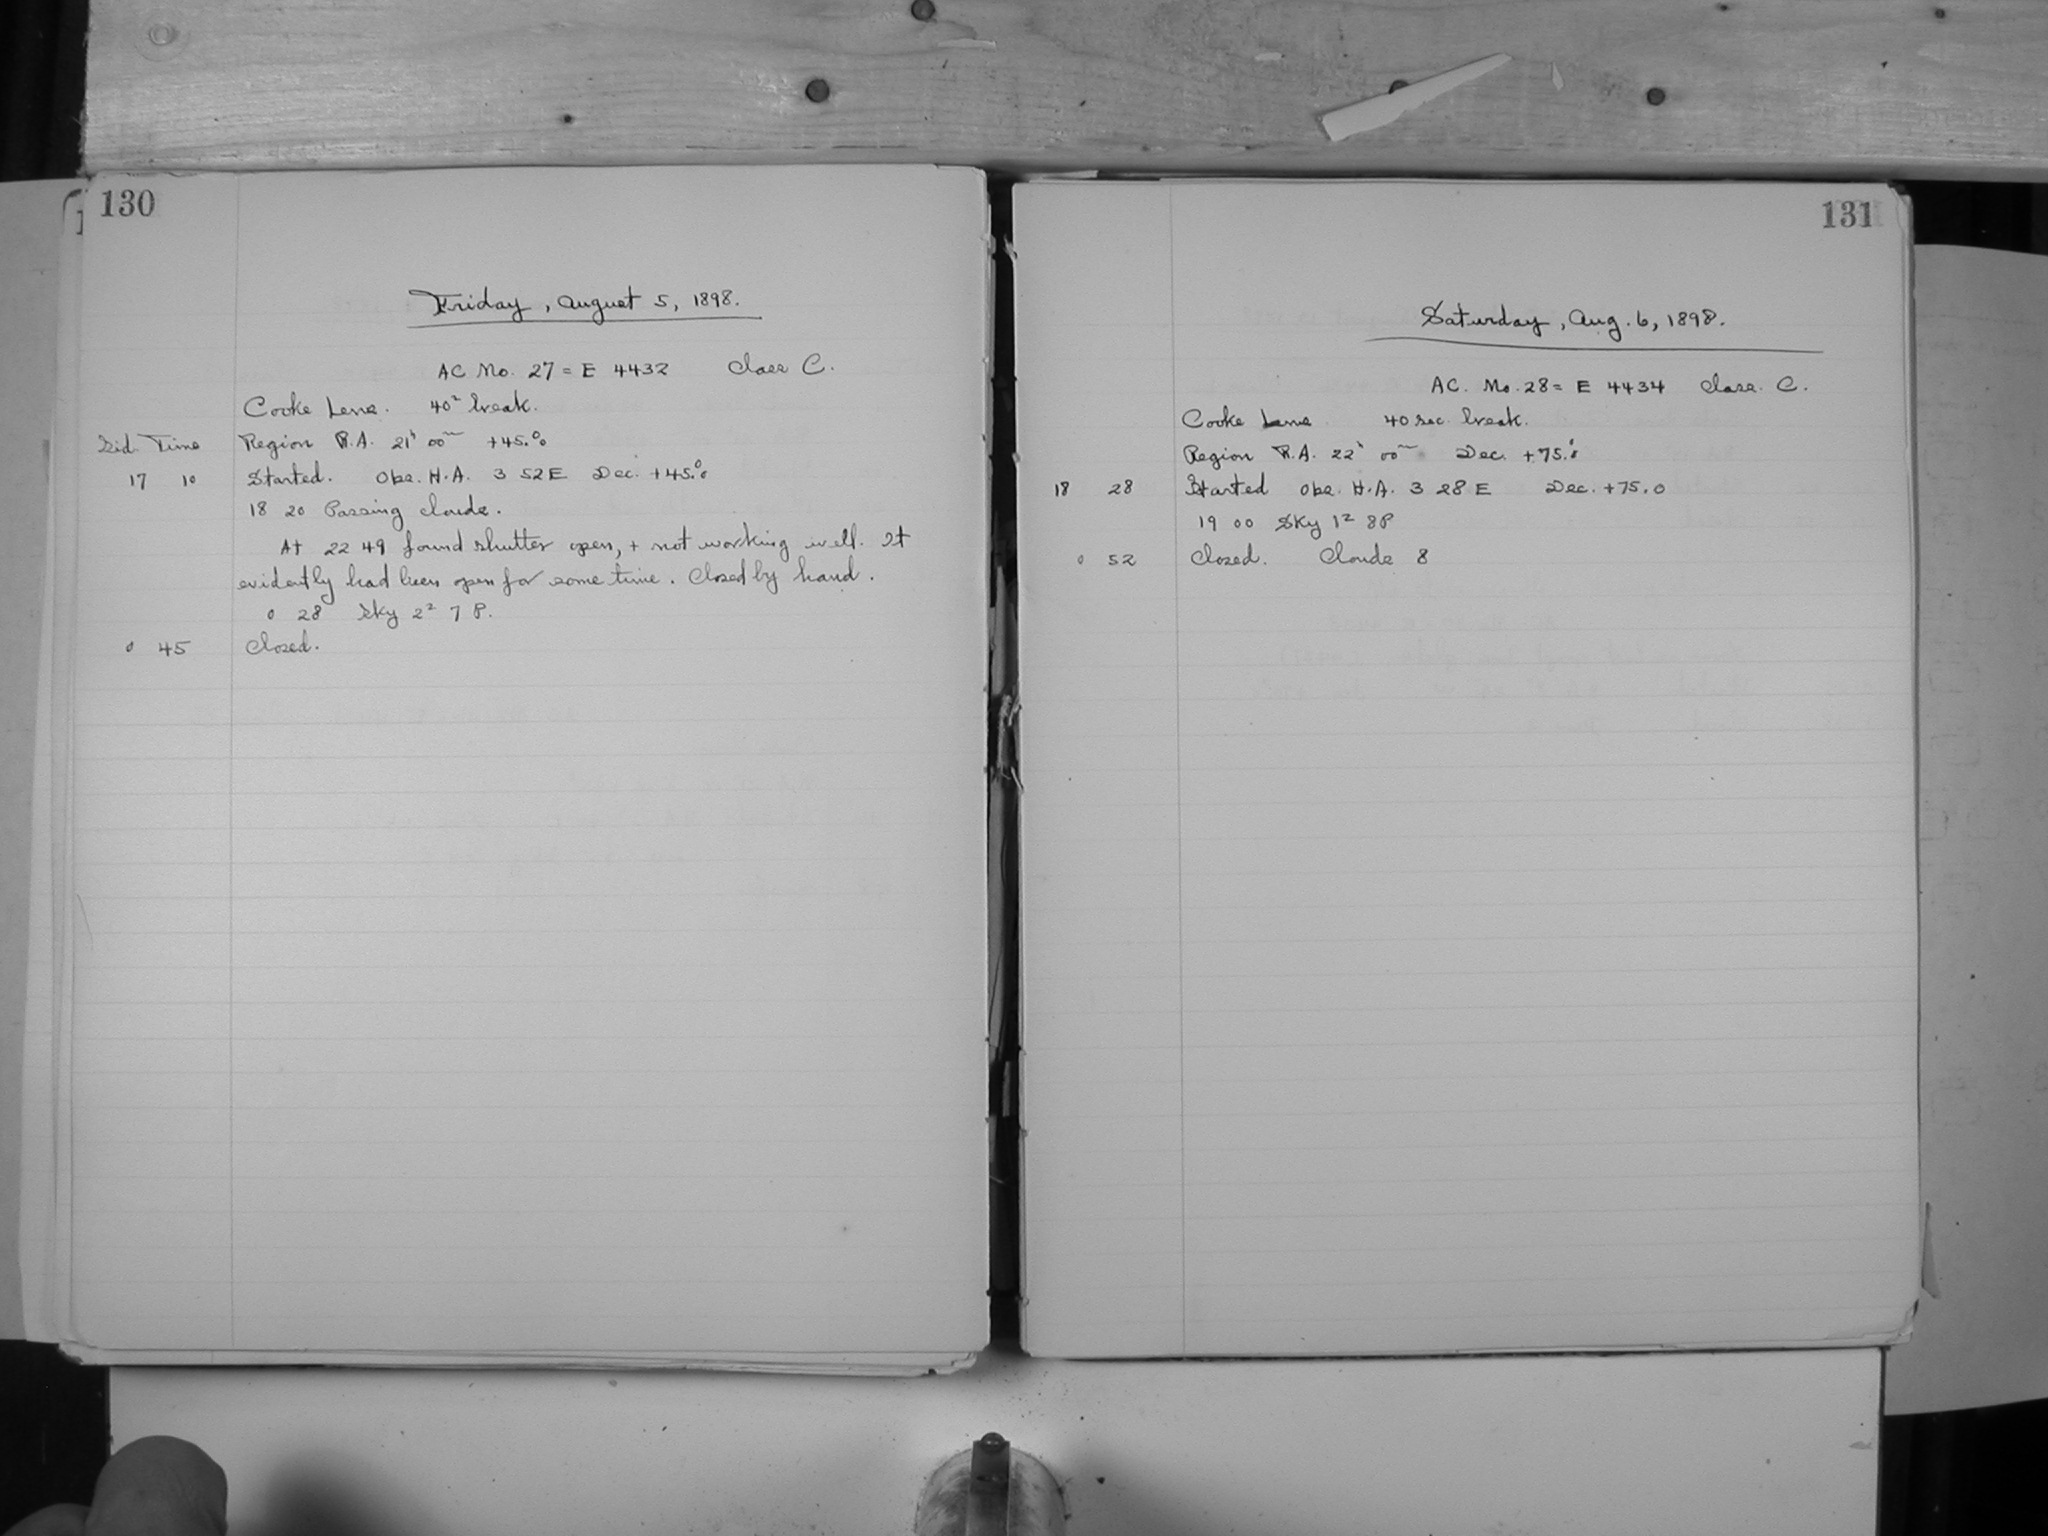 130
Friday, August 5, 1898.
AC No. 27 = E 4432 Class C.
Cooke Lens. 40ˢ break.
Sid. Time Region R.A. 21ʰ 00ᵐ +45.°0
17 10 Started. Obs. H.A. 3 52 E Dec. +45.°0
18 20 Passing clouds.
At 22 49 found shutter open, + not working well. It
evidently had been open for some time. Closed by hand.
0 28 Sky 2² 7 P.
0 45 Closed.
131
Saturday, Aug. 6, 1898.
AC. No. 28 = E 4434 Class. C.
Cooke Lens 40 sec. break.
Region R.A. 22ʰ 00ᵐ Dec. +75.°0
18 28 Started Obs. H.A. 3 28 E Dec. +75.0
19 00 Sky 1² 8P
0 52 Closed. Clouds 8